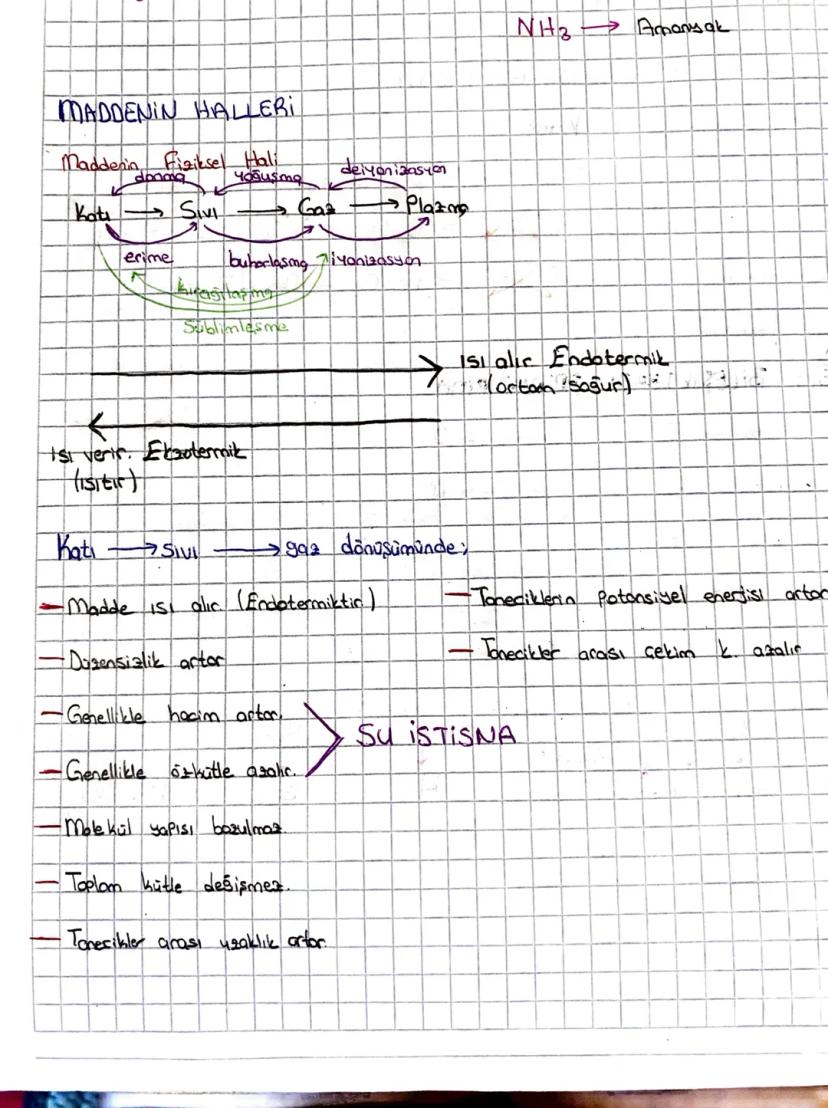 NH3 → Amonyak
MADDENİN HALLERİ
Maddenin Fiziksel Hali
donma yoğuşma deiyonizasyon
Katı → Sıvı → Gaz → Plazma
erime buharlaşma iyonizasyon
Kırağılaşma
Süblimleşme
Isı alır Endotermik
(ortam soğur)
Isı verir. Ekzotermik
(ısıtır)
Katı → Sıvı → gaz dönüşümünde;
- Madde ısı alır. (Endotermiktir) - Taneciklerin Potansiyel enerjisi artar
- Düzensizlik artar - Tanecikler arası çekim k. azalır
- Genellikle hacim artar.
SU İSTİSNA
- Genellikle özkütle azalır.
- Molekül yapısı bozulmaz.
- Toplam kütle değişmez.
- Tanecikler arası uzaklık artar.